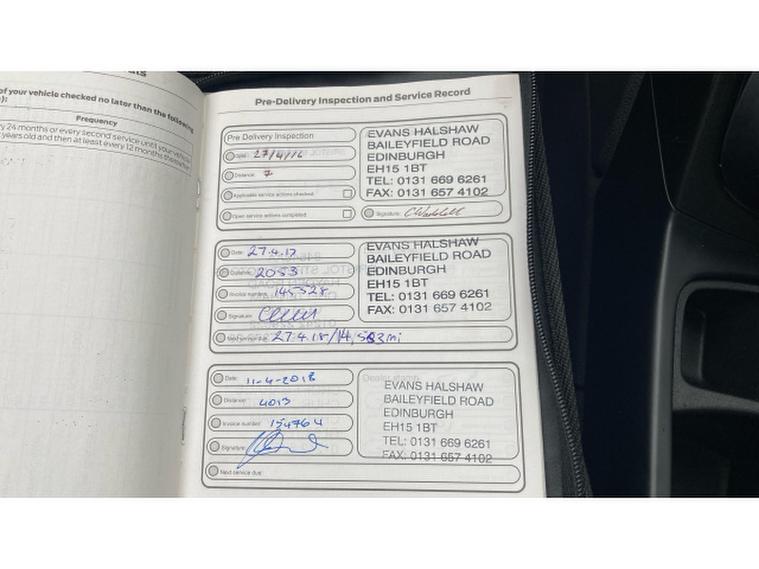 of your vehicle checked no later than the following
Frequency
24 months or every second service until your vehicle
years old and then at least every 12 months thereafter
Pre-Delivery Inspection and Service Record
Pre Delivery Inspection
Date: 27/4/16
Distance: 7
Applicable service actions checked
Open service actions completed
EVANS HALSHAW
BAILEYFIELD ROAD
EDINBURGH
EH15 1BT
TEL: 0131 669 6261
FAX: 0131 657 4102
Signature:
Date: 27.4.17
Distance: 2053
Invoice number: 145528
Signature:
Next service due: 27.4.18/14,583mi
EVANS HALSHAW
BAILEYFIELD ROAD
EDINBURGH
EH15 1BT
TEL: 0131 669 6261
FAX: 0131 657 4102
Date: 11-4-2018
Distance: 4013
Invoice number: 154764
Signature:
Next service due:
Dealer stamp
EVANS HALSHAW
BAILEYFIELD ROAD
EDINBURGH
EH15 1BT
TEL: 0131 669 6261
FAX: 0131 657 4102